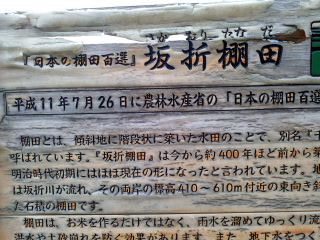 さか おり たな だ
『日本の棚田百選』 坂折棚田
平成11年7月26日に農林水産省の「日本の棚田百選
棚田とは、傾斜地に階段状に築いた水田のことで、別名『千
呼ばれています。『坂折棚田』は今から約400年ほど前から築
明治時代初期にはほぼ現在の形になったと言われています。地
は坂折川が流れ、その両岸の標高410〜610m付近の東向き斜
た石積の棚田です。
棚田は、お米を作るだけではなく、雨水を溜めてゆっくり流
洪水や土砂崩れを防ぐ効果があります。また、地下水をつく